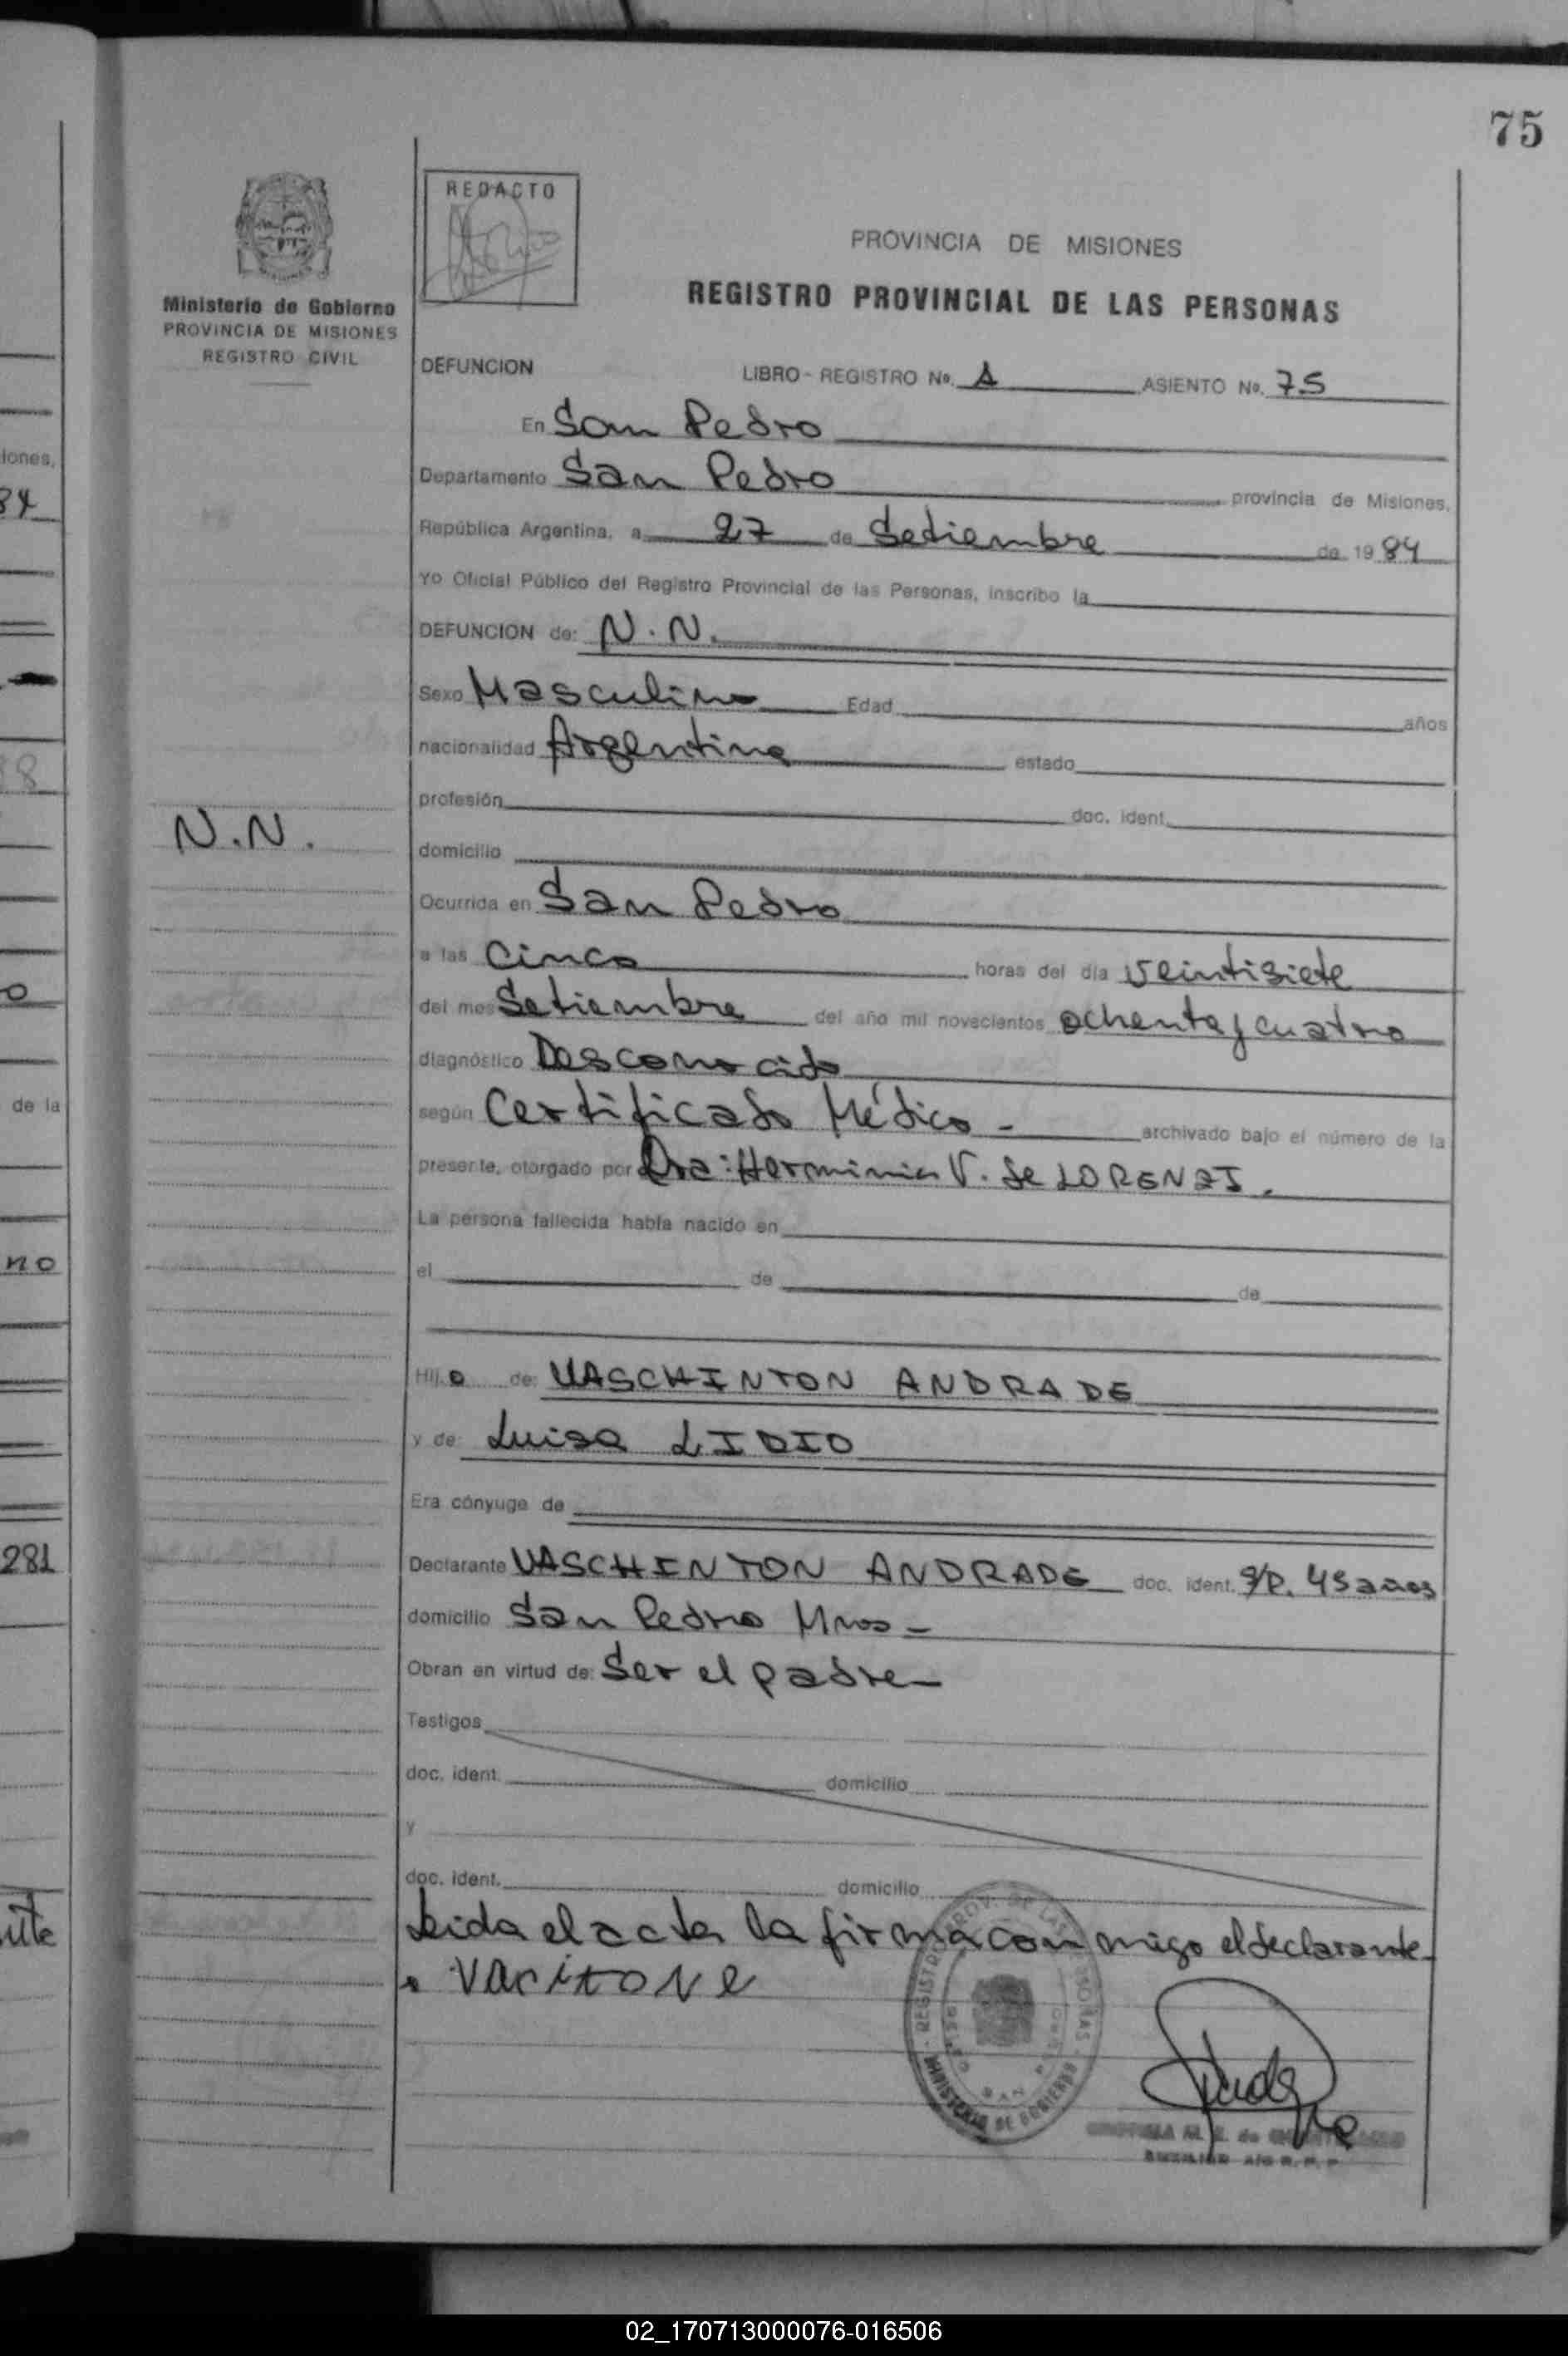 75
REDACTO
Ministerio de Gobierno
PROVINCIA DE MISIONES
REGISTRO CIVIL
PROVINCIA DE MISIONES
REGISTRO PROVINCIAL DE LAS PERSONAS
DEFUNCION LIBRO - REGISTRO No. A ASIENTO No. 75
En San Pedro
Departamento San Pedro provincia de Misiones,
República Argentina, a 27 de Setiembre de 1984
Yo Oficial Público del Registro Provincial de las Personas, inscribo la
DEFUNCION de: N.N.
Sexo Masculino Edad años
nacionalidad Argentina estado
profesión doc. ident.
N.N.
domicilio
Ocurrida en San Pedro
a las Cinco horas del día veintisiete
del mes Setiembre del año mil novecientos ochenta y cuatro
diagnóstico Desconocido
según Certificado Médico - archivado bajo el número de la
presente, otorgado por Dra: Herminia V. de LORENZI.
La persona fallecida había nacido en
el de de
Hijo de: UASCHINTON ANDRADE
y de Luisa LIDIO
Era cónyuge de
Declarante UASCHINTON ANDRADE doc. ident. S/P. 45 años
domicilio San Pedro Mnes -
Obran en virtud de: Ser el padre -
Testigos
doc. ident. domicilio
y
doc. ident. domicilio
Leida el acta la firma conmigo el declarante -
VaciTONe
REGISTRO PROV. DE LAS PERSONAS
MINISTERIO DE GOBIERNO
iones,
84
18
0
de la
no
281
ute
02_170713000076-016506